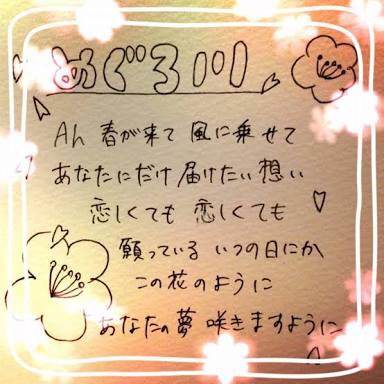 めぐろ川
Ah 春が来て 風に乗せて
あなたにだけ 届けたい想い
恋しくても 恋しくても
願っている いつの日にか
この花のように
あなたの夢 咲きますように